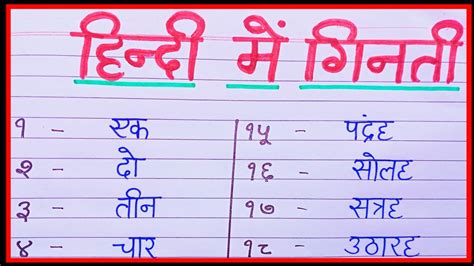 हिन्दी में गिनती
१ - एक
२ - दो
३ - तीन
४ - चार
१५ - पद्रंह
१६ - सोलह
१७ - सत्रह
१८ - उठारह